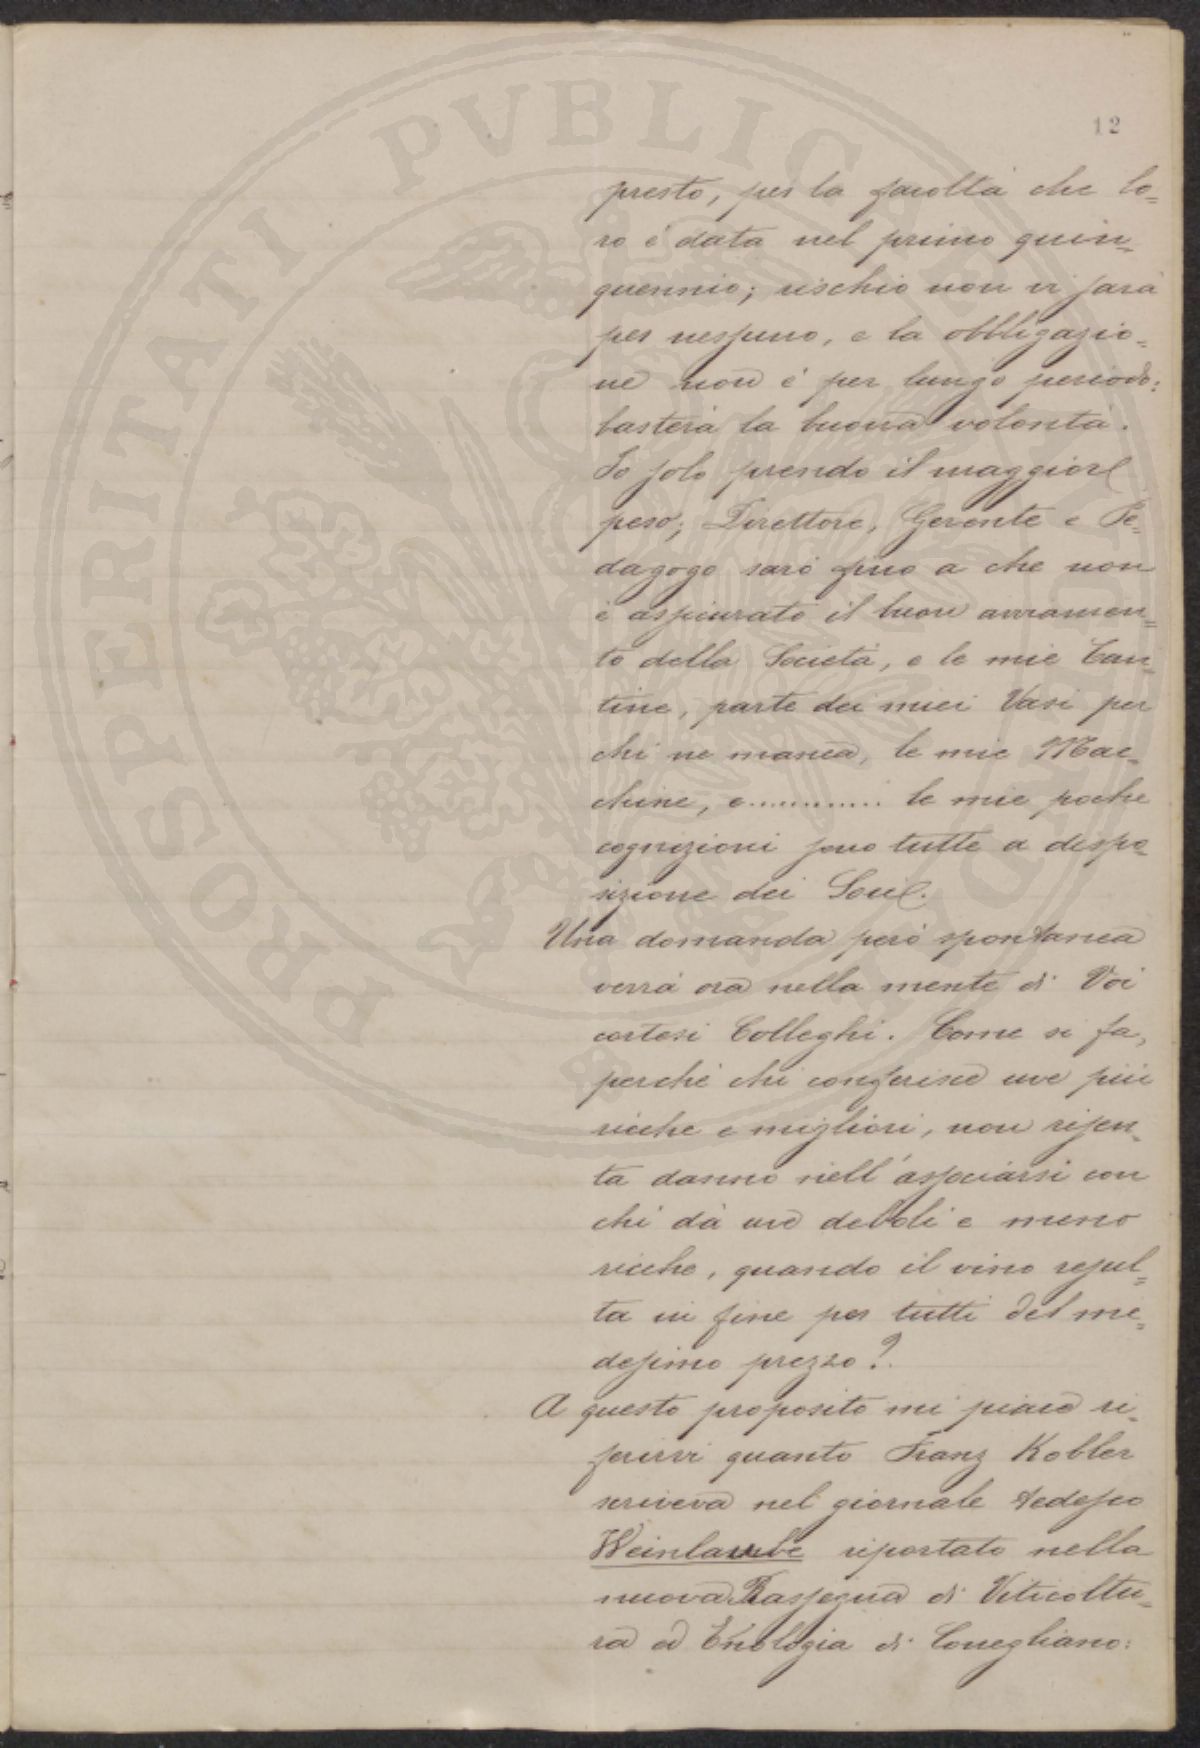 PROSPERITATI PVBLICAE
12
presto, per la facoltà che lo=
ro è data nel primo quin=
quennio; rischio non vi sarà
per nessuno, e la obbligazio=
ne non è per lungo periodo:
basterà la buona volontà.
Io solo prendo il maggiore
peso; Direttore, Gerente e Pe=
dagogo sarò fino a che non
è assicurato il buon avviamen=
to della Società, e le mie Can=
tine, parte dei miei Vasi per
chi ne manca, le mie Mac=
chine, e............ le mie poche
cognizioni sono tutte a dispo=
sizione dei Socii.
Una domanda però spontanea
verrà ora nella mente di Voi
cortesi Colleghi. Come si fa,
perchè chi conferisce uve più
ricche e migliori, non risen=
ta danno nell'associarsi con
chi dà uve deboli e meno
ricche, quando il vino resul=
ta in fine per tutti del me=
desimo prezzo?
A questo proposito mi piace ri=
ferirvi quanto Franz Kobler
scriveva nel giornale tedesco
Weinlaube riportato nella
nuova Rassegna di Viticoltu=
ra ed Enologia di Conegliano: